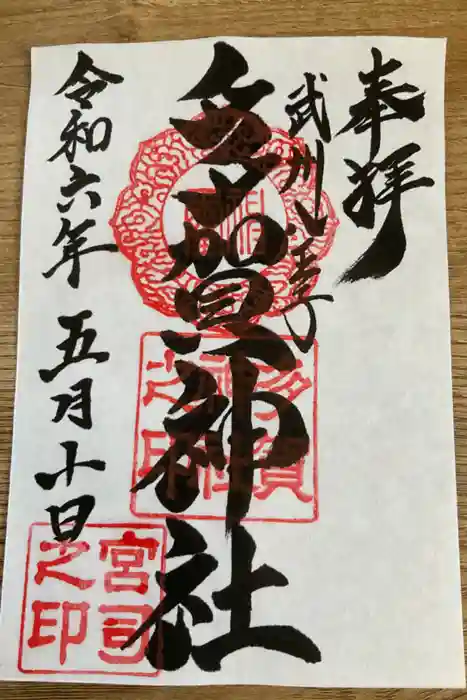 奉拝
武州八王子
多賀神社
令和六年五月十日
多賀神社之印
宮司之印